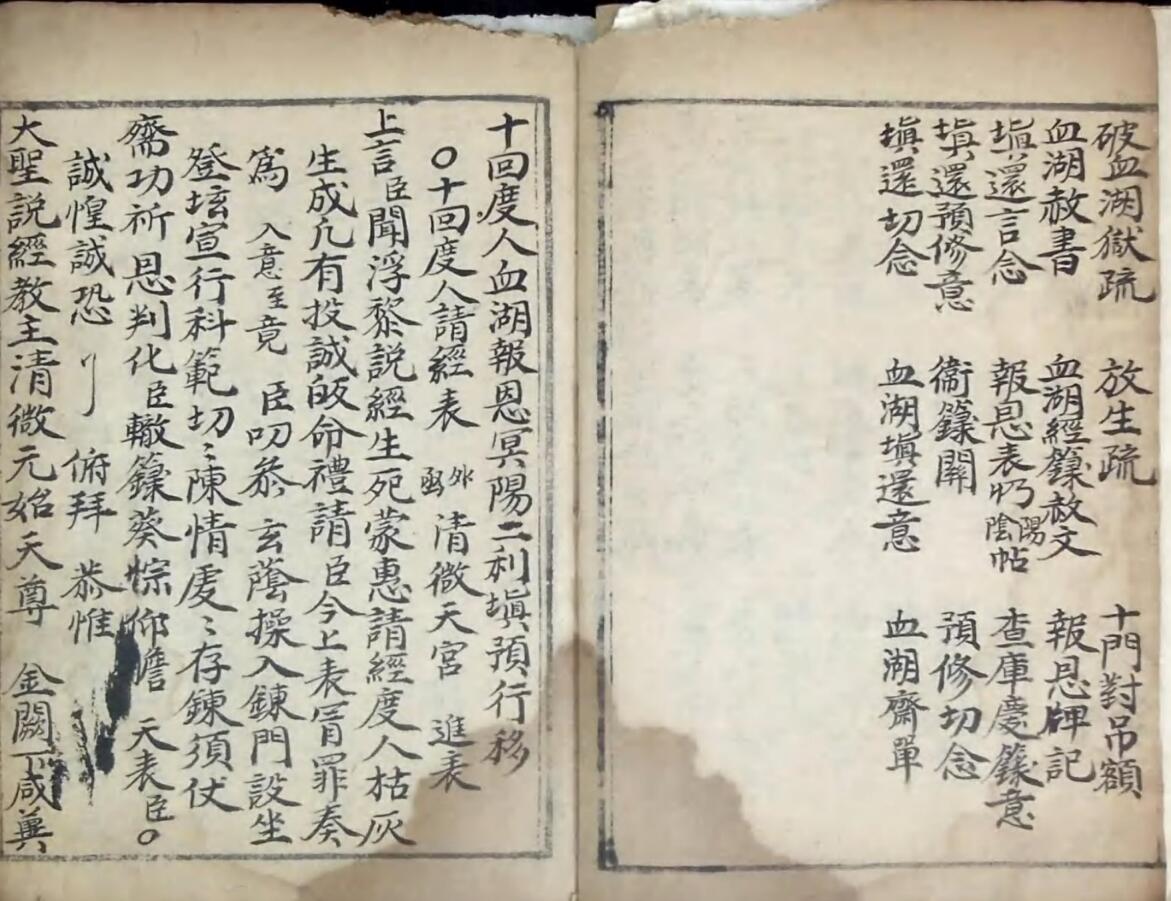 破血湖獄疏　放生疏　十門對吊額
血湖赦書　血湖經籙赦文　報恩牌記
填還言念　報恩表 陰陽帖　查庫慶籙意
填還預修意　衞籙關　預修切念
填還切念　血湖填還意　血湖齋單
十回度人血湖報恩冥陽二利填預行移
○十回度人請經表　外函　清微天宮　進表
上言臣聞浮黎説經生死蒙惠請經度人枯灰
生成凢有投誠皈命禮請臣今上表冐罪奏
爲　入意至竟　臣叨叅　玄蔭操入鍊門設坐
登壇宣行科範切〻陳情䖏〻存鍊須伏
齋功祈恩判化臣轍籙葵悰仰瞻　天表臣○
誠惶誠恐　俯拜　恭惟
大聖説經教主清微元始天尊　金闕下咸冀